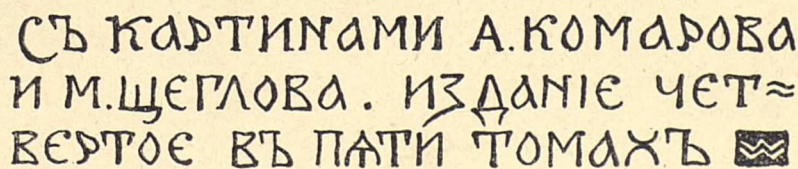 Съ картинами А.Комарова
и М.Щеглова. Изданіе чет=
вертое въ пѧти томахъ